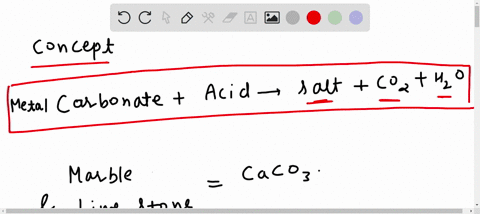 Concept
Metal Carbonate + Acid → salt + CO2 + H2O
Marble = CaCO3.
& Lime stone